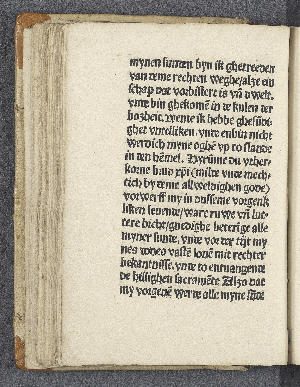 mynen sunnen byn ik ghetreden
van deme rechten weghe/alze eyn
schap dat vorbistert is vñ dwelt.
vnde bin ghekomẽ in de kulen der
bosheit. wente ik hebbe ghesũdi-
ghet vnteliken. vnde enbin nicht
werdich myne oghẽ vp to slande
in den hẽmel. Hyrũme du vther-
korne hand xpi (milde vnde mech-
tich by deme allweldighen gode)
vorwerff my in dusseme vorgenk
liken leuende/ware ruwe vñ lut-
tere bicht/gnedighe beterige alle
myner sunde, vnde vor der tijt my
nes dodes vastẽ louẽ mit rechter
bekantnisse. vnde to entuangende
de hillighen sacramẽte Alzo dat
my vorgeuẽ werde alle myne sũde